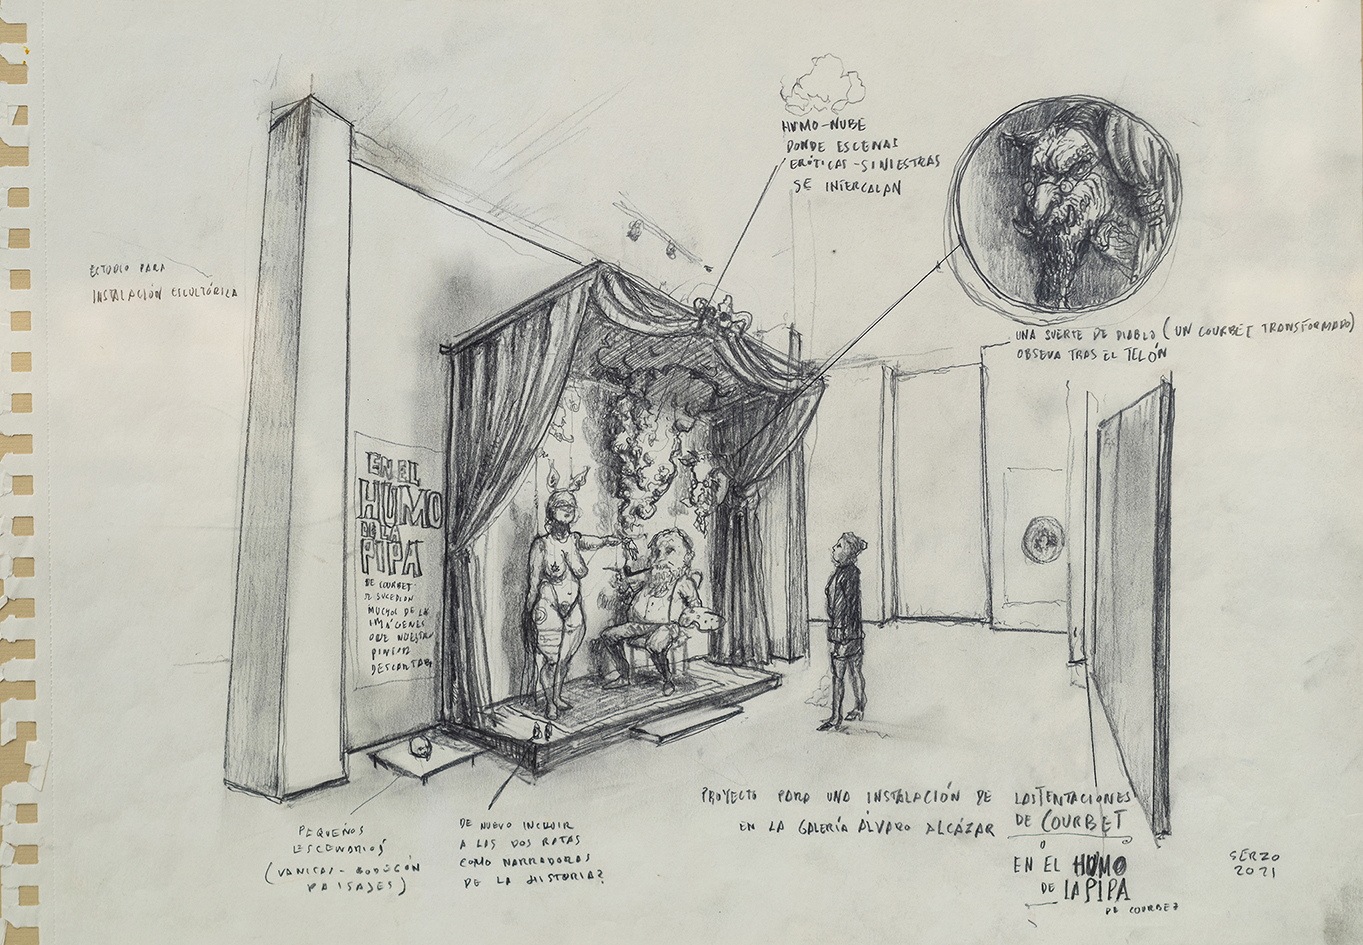 HUMO-NUBE
DONDE ESCENAS
ERÓTICAS-SINIESTRAS
SE INTERCALAN
ESTUDIO PARA
INSTALACIÓN ESCULTÓRICA
UNA SUERTE DE DIABLO (UN COURBET TRANSFORMADO)
OBSEVA TRAS EL TELÓN
EN EL
HUMO
DE LA
PIPA
DE COURBET
SUCEDIAN
MUCHAS DE LAS
IMÁGENES
QUE NUESTRO
PINTOR
DESCARTABA
PEQUEÑOS
ESCENARIOS
(VANITAS-BODEGÓN
PAISAJES)
DE NUEVO INCLUIR
A LAS DOS RATAS
COMO NARRADORAS
DE LA HISTORIA?
PROYECTO PARA UNA INSTALACIÓN DE LAS TENTACIONES
DE COURBET
EN LA GALERÍA ÁLVARO ALCÁZAR
O
EN EL HUMO
DE LA PIPA
DE COURBET
SERZO
2021